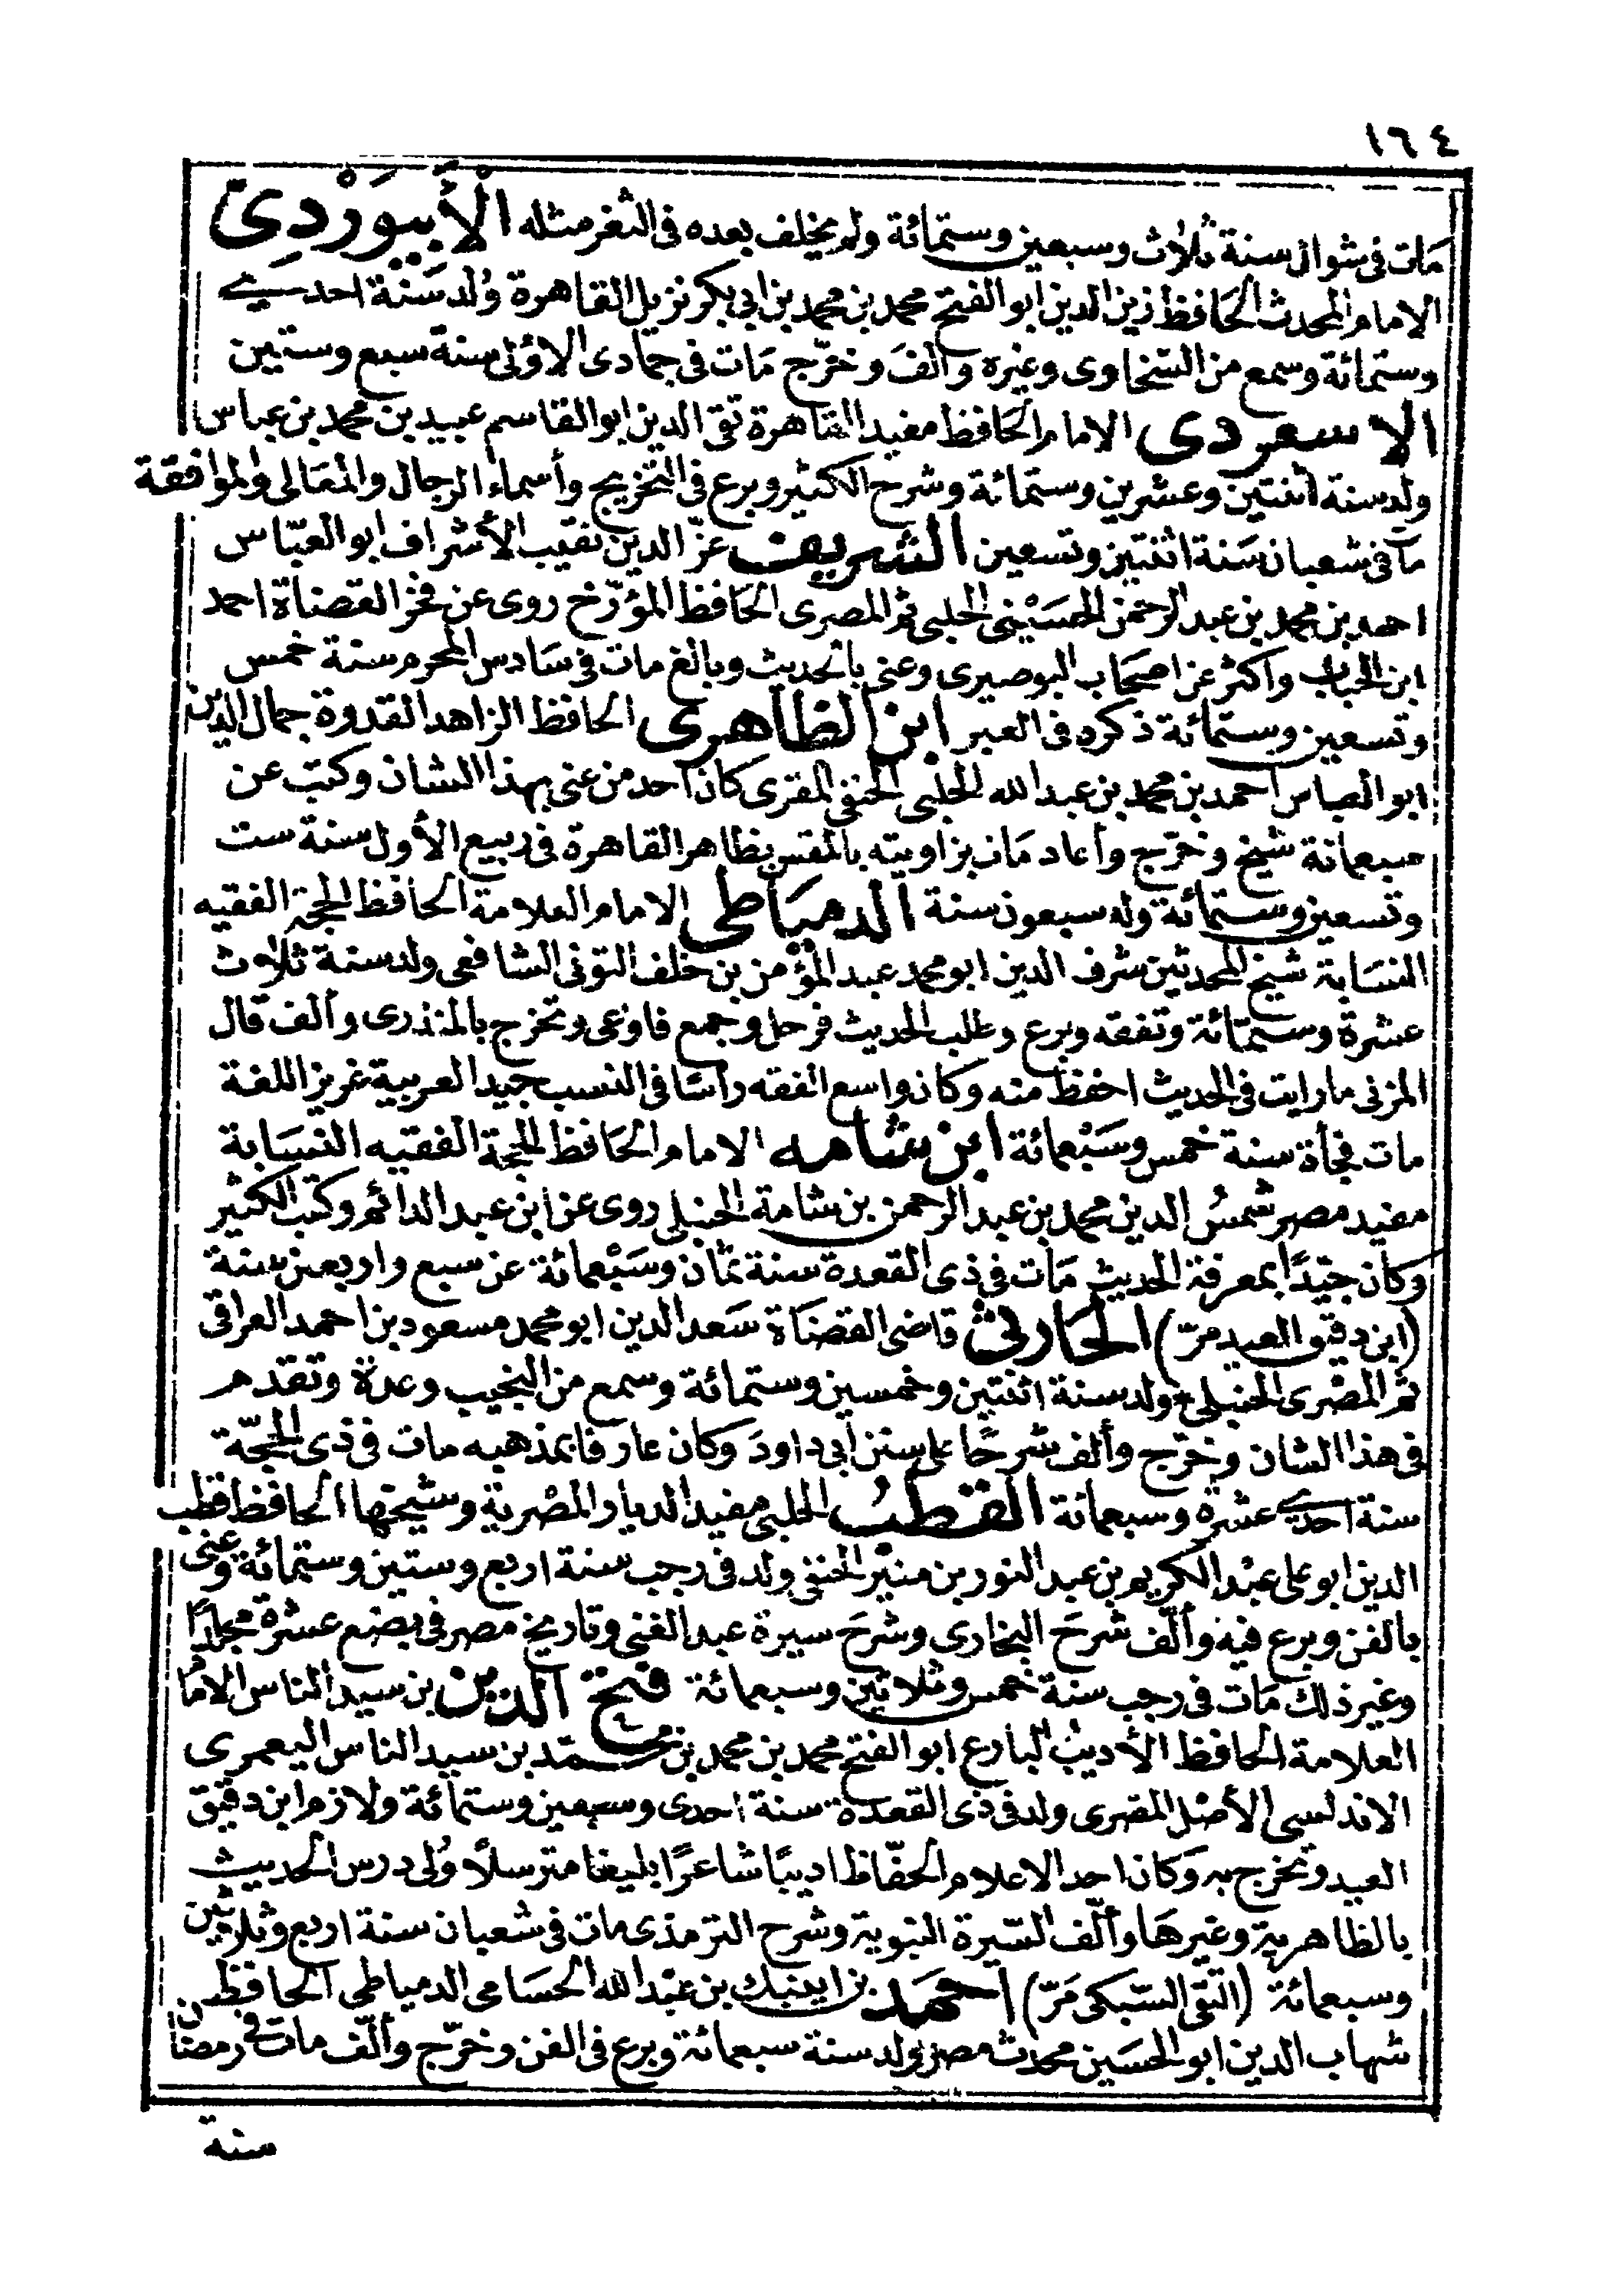 ١٦٤
مَات فى شوال سنة ثلاث وسبعين وستمائة ولم يخلف بعده فى الثغر مثله الْأَبيَوَرْدِىّ
الامام المحدث الحَافظ زين الدين ابو الفتح محمد بن محمد بن ابى بكر نزيل القاهرة وُلد سَنَة احدى
وستمائة وسمع من السّخاوى وغيره وألفَ وخرّج مَات فى جمادى الاولى سنة سبع وستين
الاسعردى الامام الحَافظ مفيد القاهرة تقى الدين ابو القاسم عبيد بن محمد بن عباس
ولد سنة اثنتين وعشرين وستمائة وشرح الكثير وبرع فى التخريج وأسماء الرجال والمعَالى والموافقة
مَا فى شعبان سَنة اثنتين وتسعين الشريف عزّ الدين نقيب الأشراف ابو العبّاس
احمد بن محمد بن عبد الرحمن الحسَيْنى الحلبى ثم المصرى الحَافظ المؤرّخ روى عن فخر القضاة احمد
ابن الحباب واكثر عن اصحَاب البوصيرى وعنى بالحديث وبالغ مات فى سَادس المحرم سنة خمس
وتسعين وستمائة ذكره فى العبر ابن الظاهرى الحافظ الزاهد القدوة جمال الدين
ابو العباس احمد بن محمد بن عبد الله الحلبى الحنفى المقرى كان احد من عنى بهذا الشان وكتب عن
سبعمائة شيخ وخرّج وأعاد مَات بزاويته بالمقس بظاهر القاهرة فى ربيع الأول سنة ست
وتسعين وستمائة وله سبعون سنة الدميَاطى الامام العلامة الحافظ الحجة الفقيه
النسَابة شيخ المحدثين شرف الدين ابو محمد عبد المؤمن بن خلف التونى الشافعى ولد سنة ثلاث
عشرة وستمّائة وتفقه وبرع وطلب الحديث فرحل وجمع فاوعى وتخرج بالمنذرى وألف قال
المزنى ما رايت فى الحديث احفظ منه وكان واسع الفقه رأسًا فى النسب جيد العربية غزير اللغة
مات فجأة سنة خمس وسَبْعمائة ابن شامه الامام الحَافظ الحجة الفقيه النسَابة
مفيد مصر شمسُ الدين محمد بن عبد الرحمن بن شامة الحنبلى روى عن ابن عبد الدائم وكتب الكثير
وكان جيّدًا بمعرفة الحديث مَات فى ذى القعدة سنة ثمان وسَبْعمائة عن سبع واربعين سنة
(ابن دقيق العيد مرّ) الحَارثى قاضى القضَاة سَعد الدين ابو محمد مسعود بن احمد العراقى
ثم المصْرى الحنبلى ولد سنة اثنتين وخمسين وستمائة وسمع من النجيب وعدة وتقدم
فى هذا الشان وخرّج وألف شرحًا على سنن أبى داودَ وكان عارفا بمذهبه مات فى ذى الحجّة
سنة احدى عشرة وسبعمائة القطبُ الحلبى مفيد الديار المصْرية وشيخها الحافظ قطب
الدين ابو على عبْد الكريم بن عبد النور بن منيْر الحنفى ولد فى رجب سنة اربع وستين وستمائة وعنى
بالفن وبرع فيه وألّف شرحَ البخارى وشرحَ سيرة عبد الغنى وتاريخ مصر فى بضع عشرة مجلدًا
وغير ذلك مَات فى رجب سنة خمس وثلاثين وسبعمائة فتح الدين بن سيد الناس الامَام
العلامة الحافظ الأديبُ البارع ابو الفتح محمد بن محمد بن محمّد بن سيد الناس اليعمرى
الاندلسى الأصْل المصرى ولد فى ذى القعدة سنة احدى وسبعين وستمائة ولازم ابن دقيق
العيد وتخرج به وكان احد الاعلام الحفّاظ اديبًا شاعرًا بليغا مترسلاً وُلى درس الحديث
بالظاهرية وغيرهَا وألّف السّيرة النبوية وشرح الترمذى مات فى شعبان سنة اربع وثلاثين
وسبعمائة (التقى السّبكى مَرّ) احمَد بن ايبك بن عبْد الله الحسَامى الدمياطى الحافظ
شهاب الدين ابو الحسَين محدث مصر ولد سنة سبعمائة وبرع فى الفن وخرّج وألّف مات فى رمضان
سنة